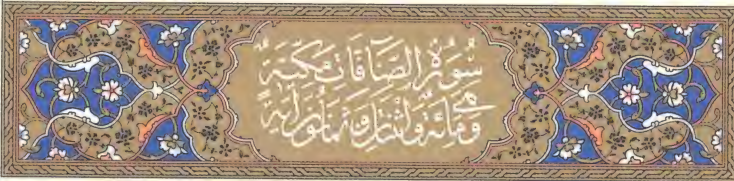 سُورَةُ الصَّافَاتِ مَكِّيَّةٌ
وَهِيَ مِائَةٌ وَاثْنَتَانِ وَثَمَانُونَ آيَةً